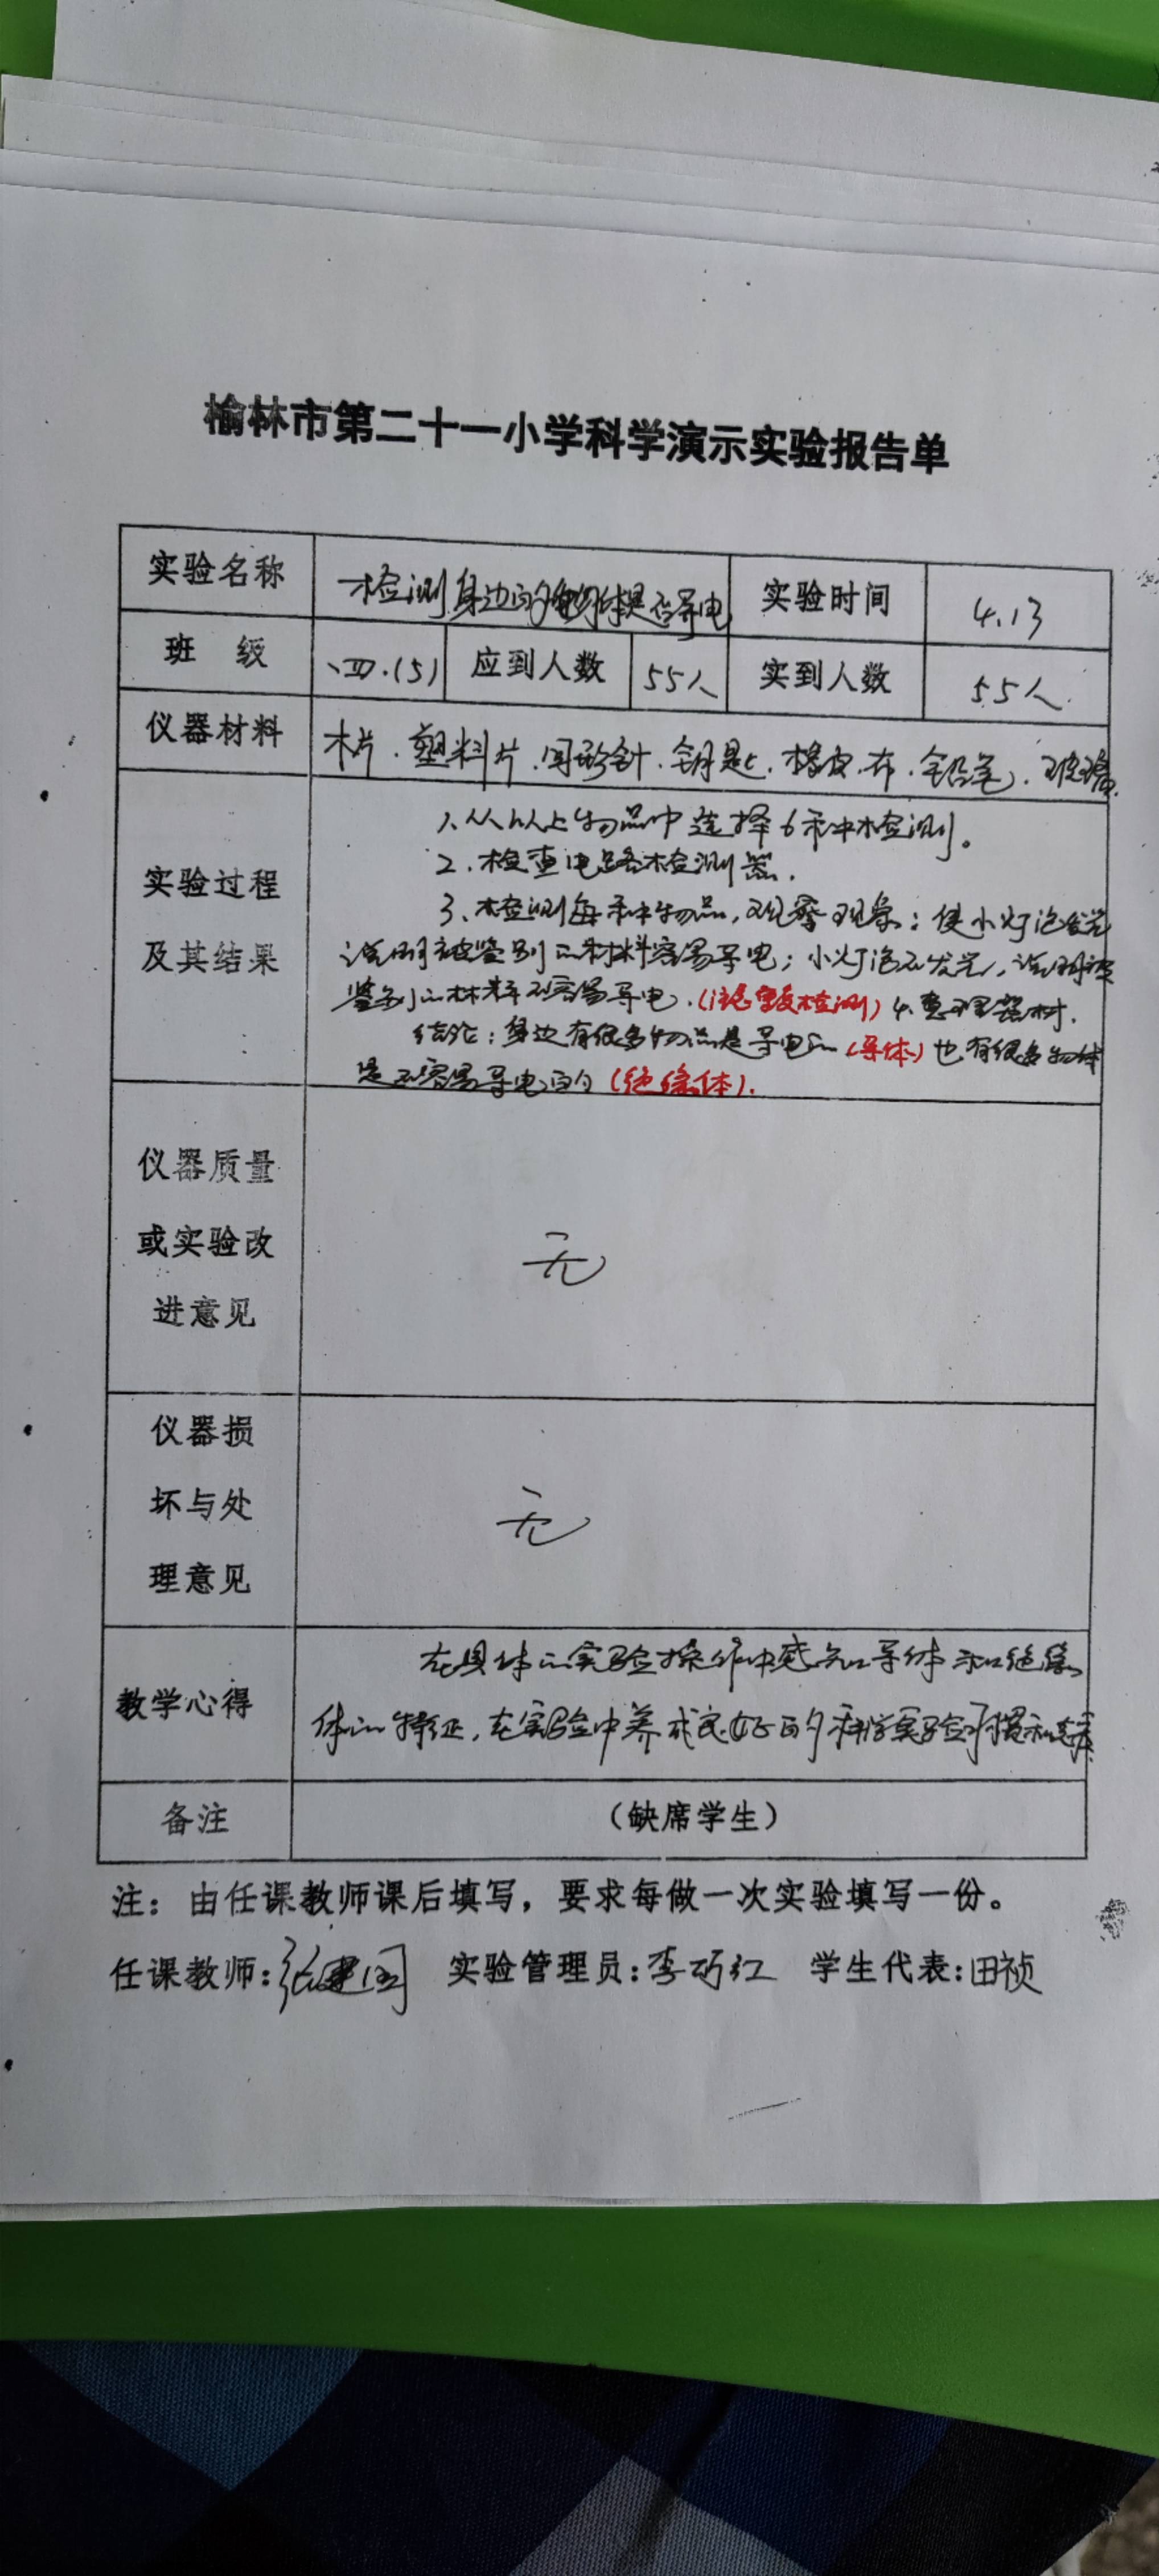 榆林市第二十一小学科学演示实验报告单
实验名称 检测身边的物体是否导电 实验时间 4.13
班 级 四.(5) 应到人数 55人 实到人数 55人.
仪器材料 木片.塑料片.回形针.钥匙.橡皮.布.铅笔.玻璃.
实验过程
及其结果
1.从以上物品中选择6种检测。
2.检查电路检测器.
3.检测每种物品,观察现象:使小灯泡发光
说明被鉴别的材料容易导电;小灯泡不发光,说明被
鉴别的材料不容易导电.(注意重复检测)4.整理器材.
结论:身边有很多物品是导电的(导体)也有很多物体
是不容易导电的(绝缘体).
仪器质量
或实验改
进意见
无
仪器损
坏与处
理意见
无
教学心得
在具体的实验操作中感知导体和绝缘
体的特征,在实验中养成良好的科学实验习惯和
备注 (缺席学生)
注:由任课教师课后填写,要求每做一次实验填写一份。
任课教师:张建国 实验管理员:李巧红 学生代表:田祯